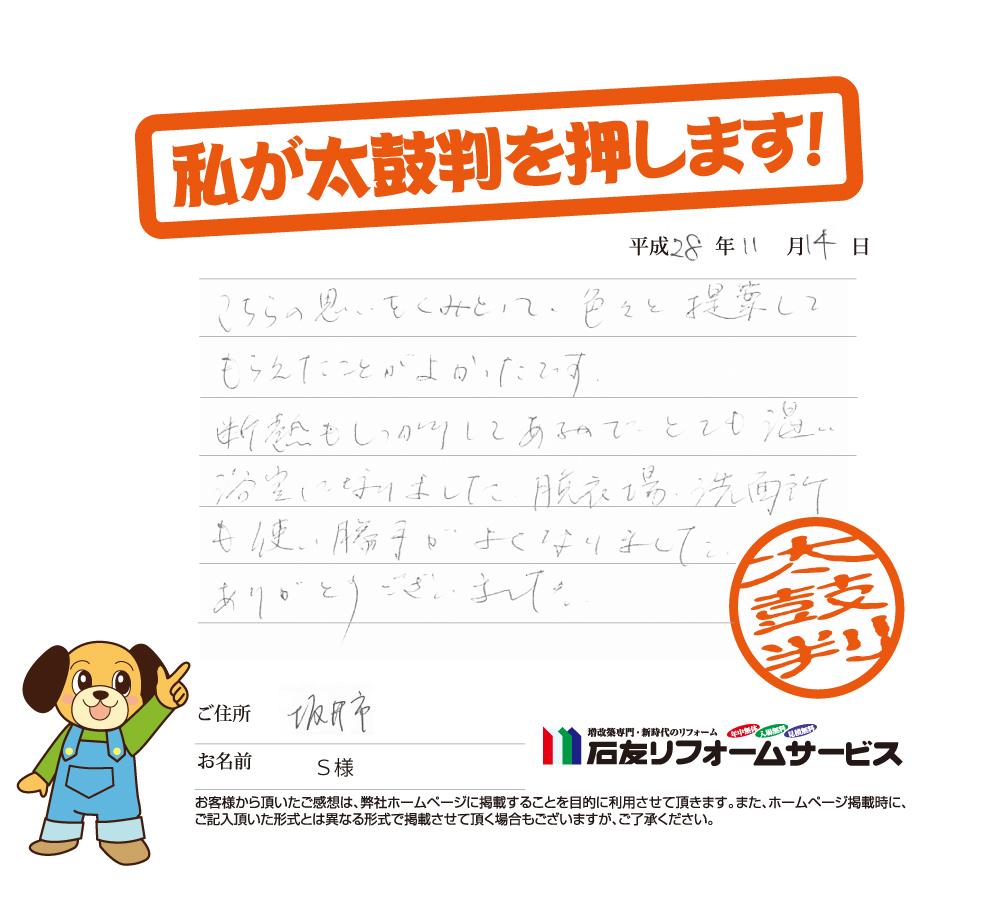 私が太鼓判を押します!
平成28年11月14日
こちらの思いをくみとって、色々と提案して
もらえたことがよかったです。
断熱もしっかりしてあるので、とても温い
浴室になりました。脱衣場、洗面所
も使い勝手がよくなりました。
ありがとうございました。
太鼓判
ご住所 坂井市
お名前 S様
増改築専門・新時代のリフォーム 年中無休 入場無料 見積無料
石友リフォームサービス
お客様から頂いたご感想は、弊社ホームページに掲載することを目的に利用させて頂きます。また、ホームページ掲載時に、
ご記入頂いた形式とは異なる形式で掲載させて頂く場合もございますが、ご了承ください。